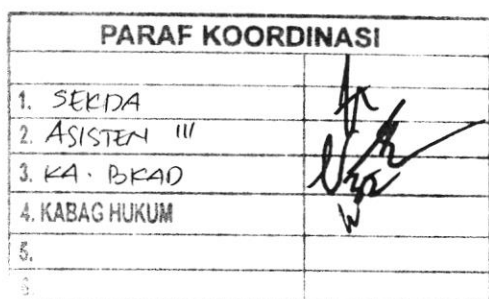 PARAF KOORDINASI
1. SEKDA
2. ASISTEN III
3. KA. BKAD
4. KABAG HUKUM
5.
6.